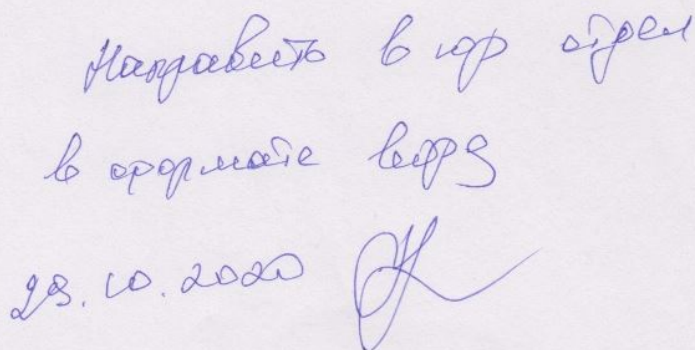 Направить в юр отдел
в формате ворд
29.10.2020